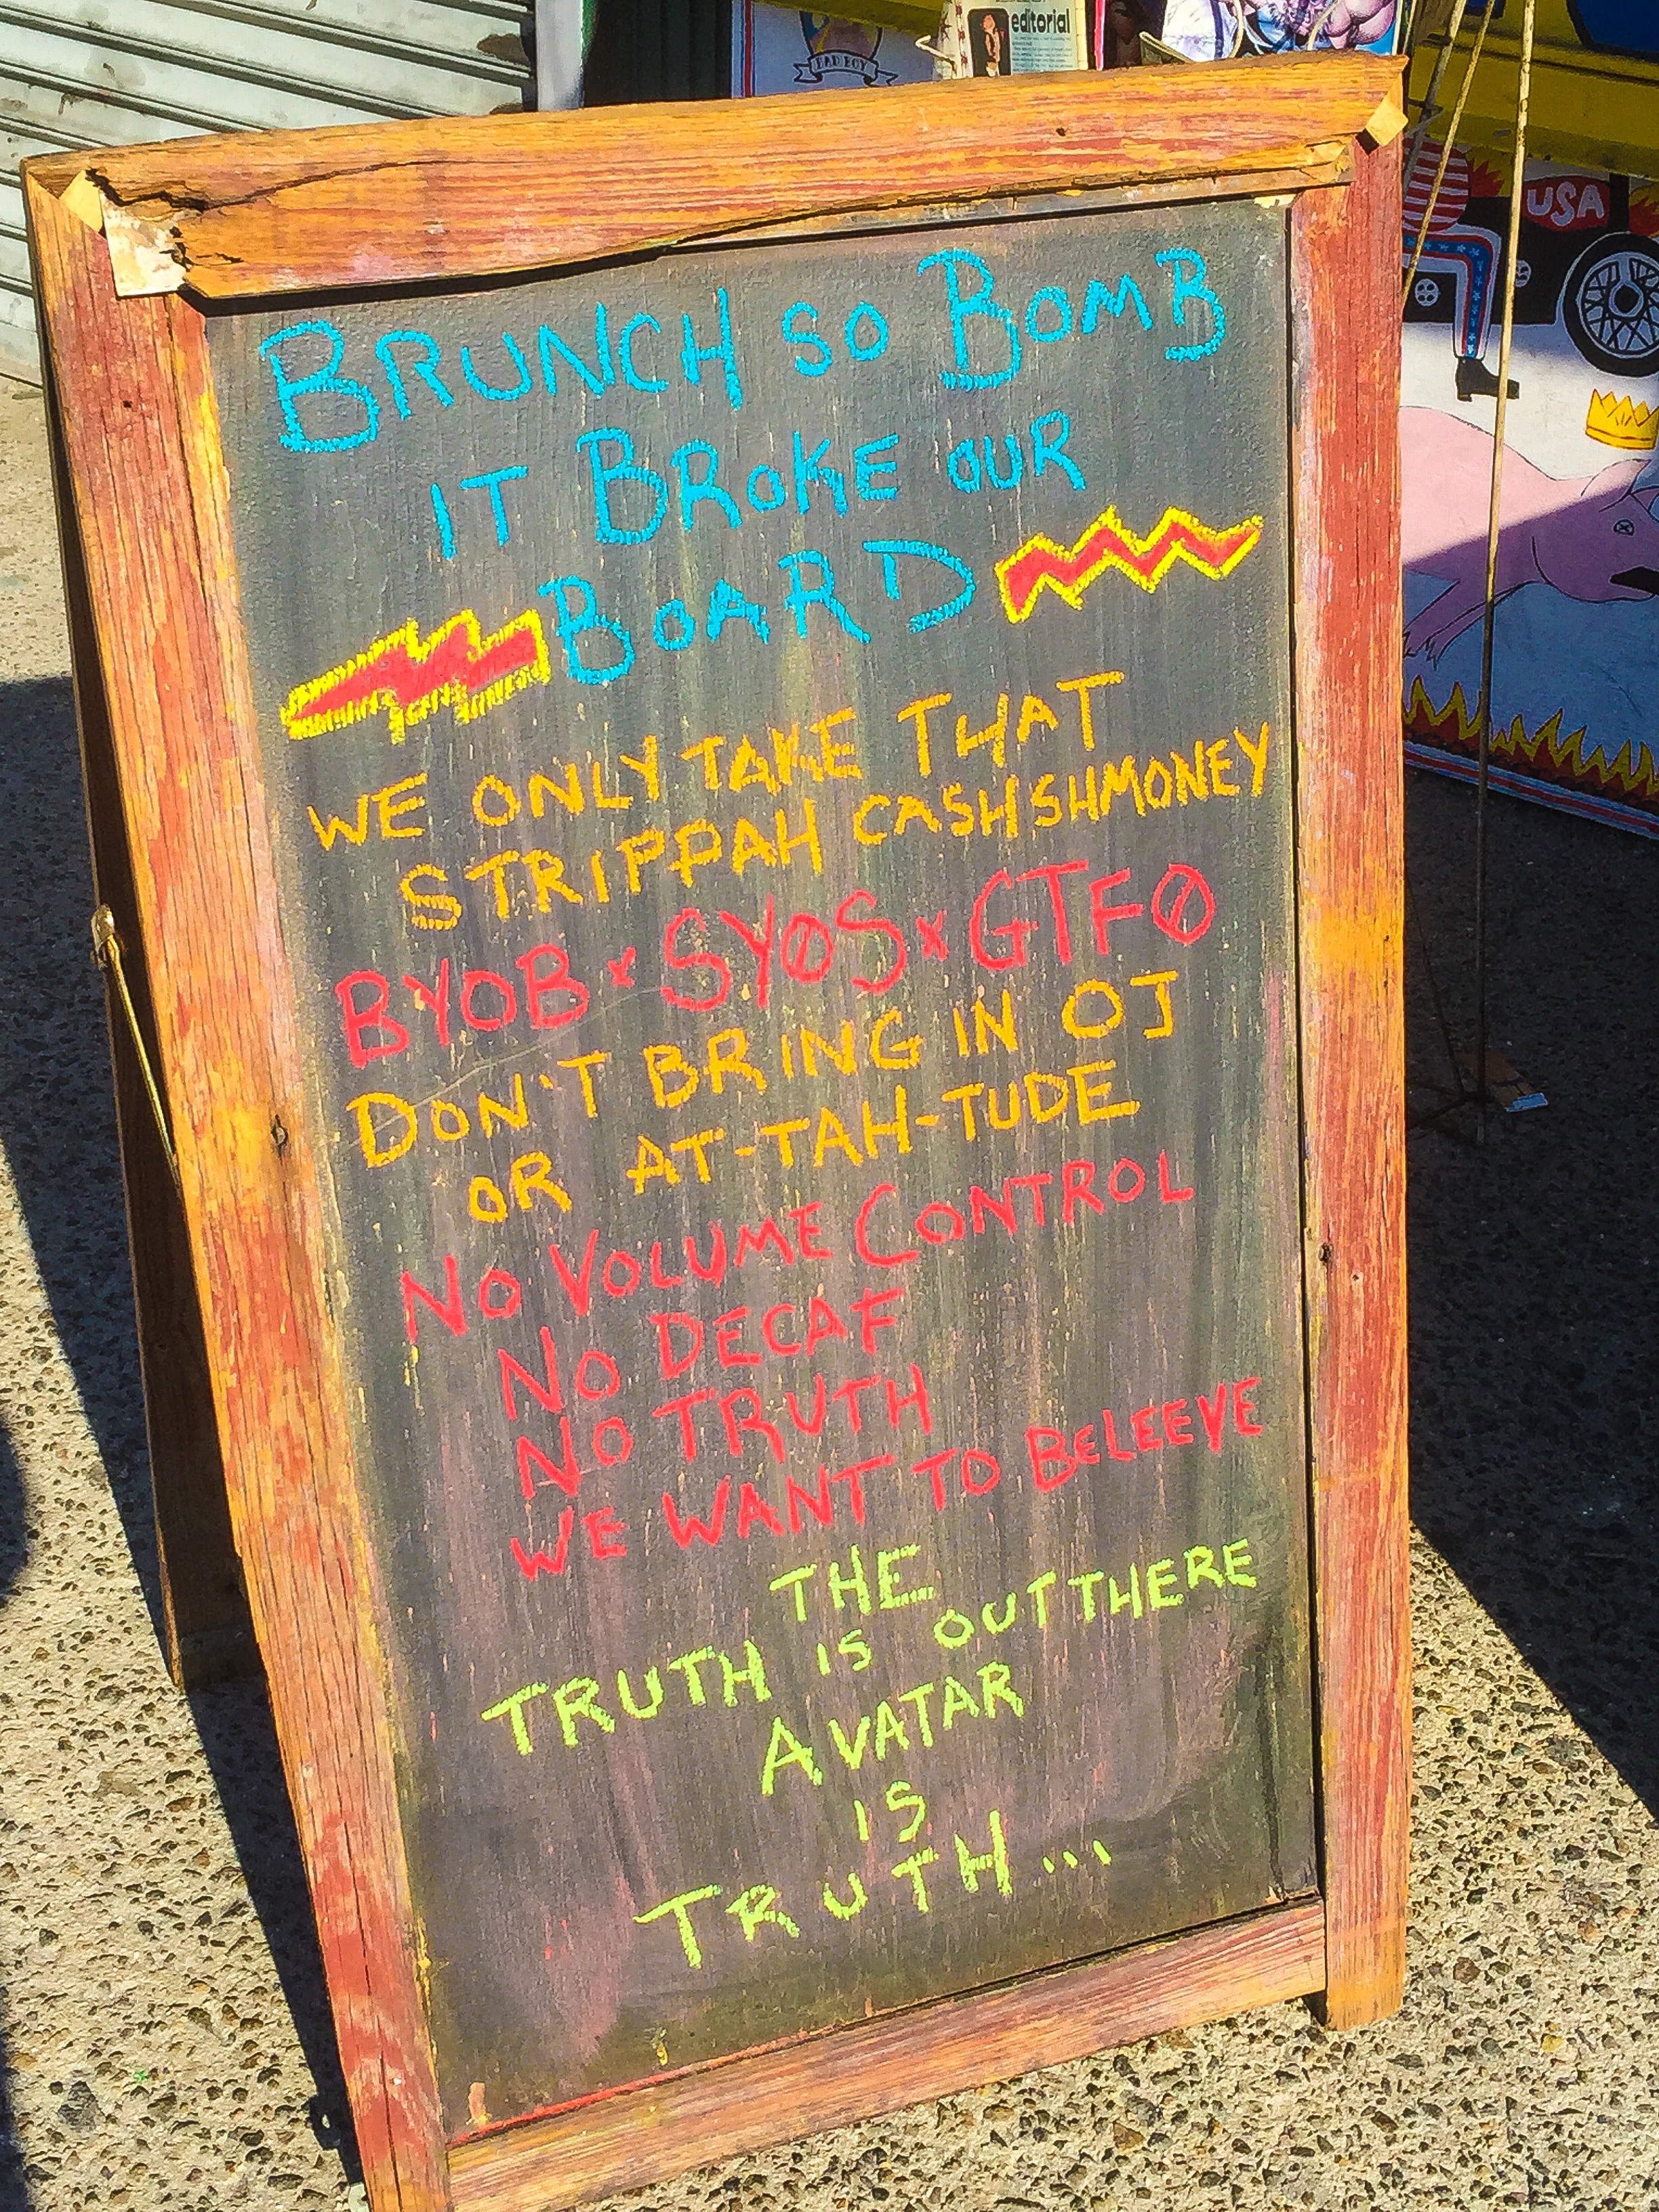 editorial
BAD BOY
USA
BRUNCH SO BOMB
IT BROKE OUR
BOARD
WE ONLY TAKE THAT
STRIPPAH CASHSHMONEY
BYOB x SYOS x GTFO
DON'T BRING IN OJ
OR AT-TAH-TUDE
NO VOLUME CONTROL
NO DECAF
NO TRUTH
WE WANT TO BELEEVE
THE
TRUTH IS OUT THERE
AVATAR
IS
TRUTH...